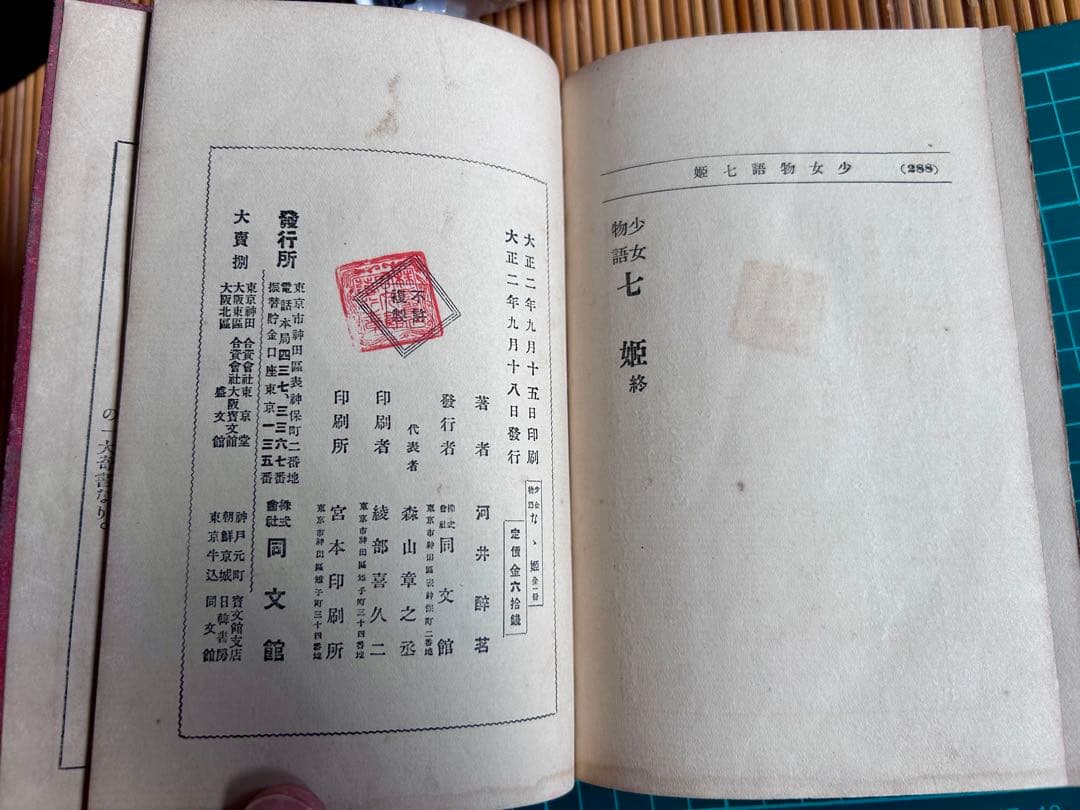 少女物語七姫 (288)
少女
物語 七姫 終
大正二年九月十五日印刷
大正二年九月十八日發行
少女
物語 なゝ姫 全一册
定價金六拾錢
著者 河井醉茗
發行者 株式
會社 同文館
東京市神田區表神保町二番地
代表者 森山章之丞
印刷者 綾部喜久二
東京市神田區雉子町三十四番地
印刷所 宮本印刷所
東京市神田區雉子町三十四番地
不許
複製
發行所
東京市神田區表神保町二番地
電話本局四三七、三三六七番
振替貯金口座東京一三五番
株式
會社 同文館
大賣捌
東京神田 合資會社東京堂
大阪東區 合資會社大阪寶文館
大阪北區 盛文館
神戸元町 寶文館支店
朝鮮京城 日韓書房
東京牛込 同文館
の一大奇書なり。